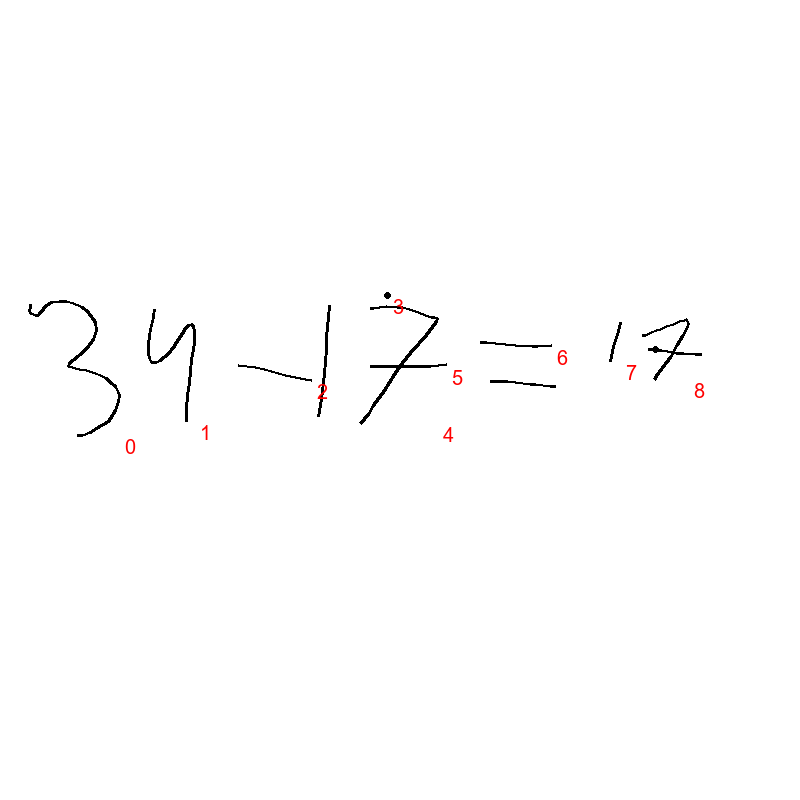 34-17=17
0 1 2 3 4 5 6 7 8